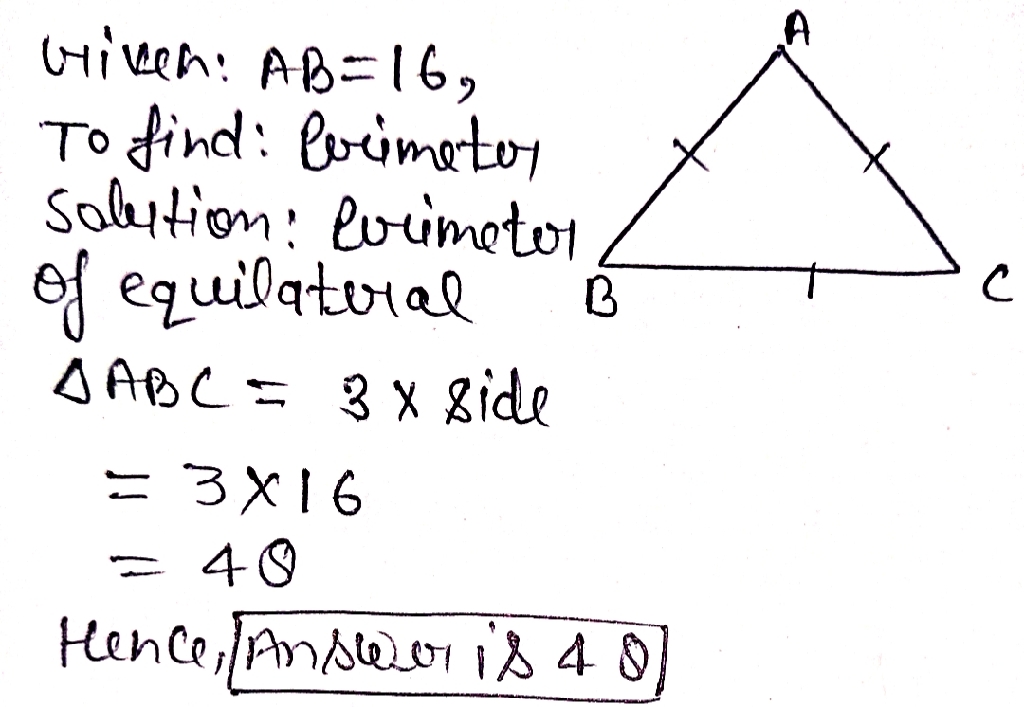 Given: AB=16,
A
To find: Perimeter
Solution: Perimeter
of equilateral
B
C
Δ ABC = 3 x side
= 3x16
= 48
Hence, Answer is 48